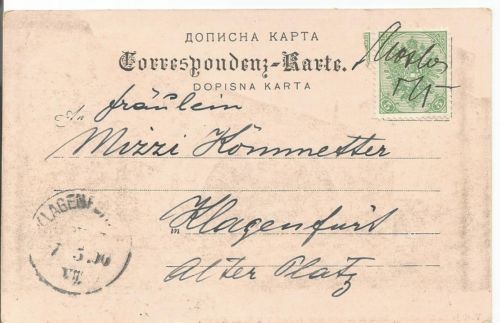 ДОПИСНА КАРТА
Correspondenz-Karte.
DOPISNA KARTA
An
Fräulein
Mizzi Kömmetter
in Klagenfurt
Alter Platz
5
5
KLAGENFURT